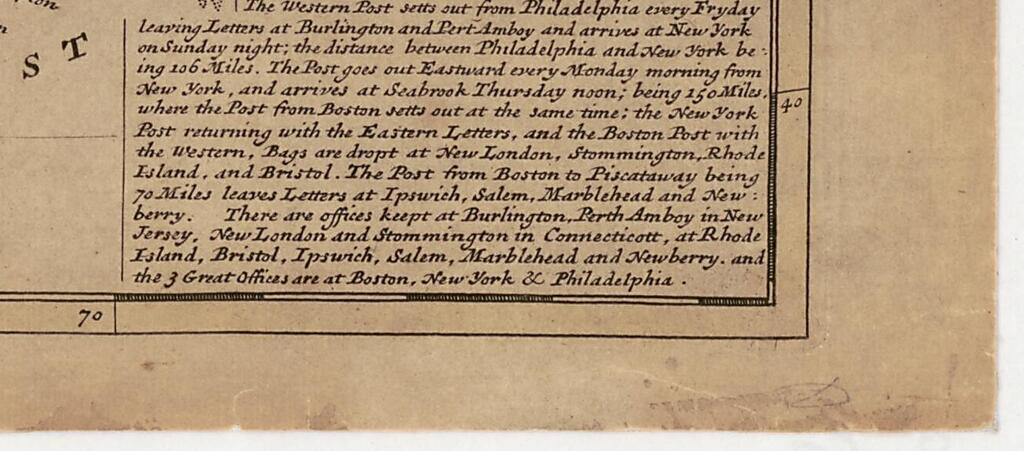 S T
The Western Post setts out from Philadelphia every Fryday
leaving Letters at Burlington and Pert Amboy and arrives at New York
on Sunday night; the distance between Philadelphia and New York be:
ing 106 Miles. The Post goes out Eastward every Monday morning from
New York, and arrives at Seabrook Thursday noon; being 150 Miles,
where the Post from Boston setts out at the same time; the New York
Post returning with the Eastern Letters, and the Boston Post with
the Western, Bags are dropt at New London, Stommington, Rhode
Island, and Bristol. The Post from Boston to Piscataway being
70 Miles leaves Letters at Ipswich, Salem, Marblehead and New:
berry. There are offices keept at Burlington, Perth Amboy in New
Jersey, New London and Stommington in Connecticott, at Rhode
Island, Bristol, Ipswich, Salem, Marblehead and Newberry. and
the 3 Great Offices are at Boston, New York & Philadelphia.
40
70